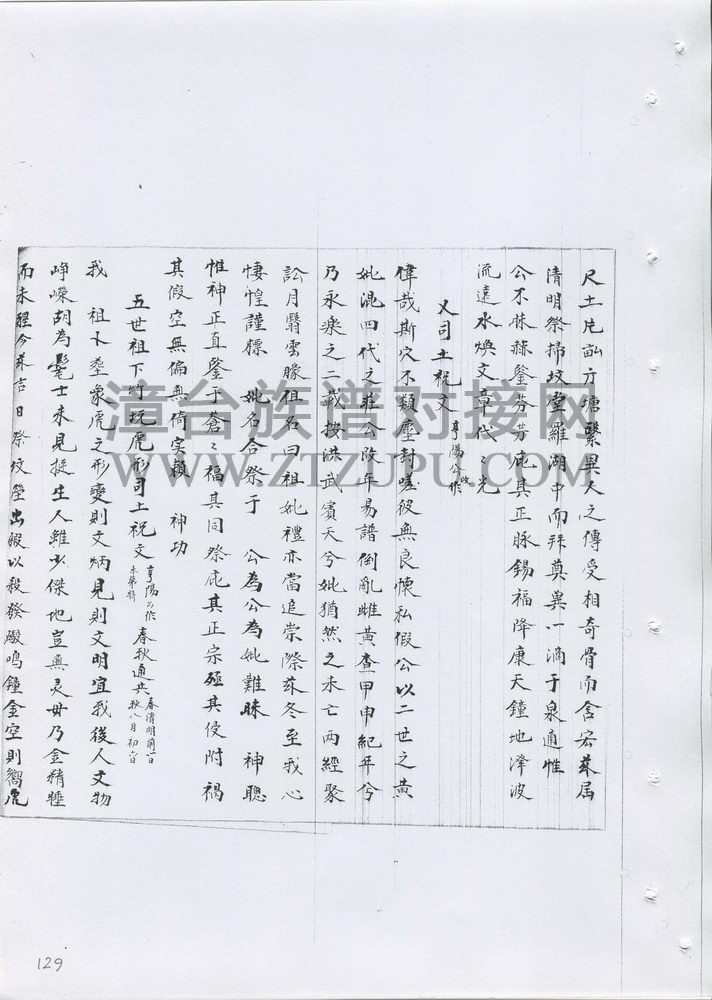 尺土片畝方塘繄異人之傳受相奇骨而含宏茲屆
清明祭掃坟堂羅湖中而拜奠異一滴于泉通惟
公不昧赫鑒芬芳庇其正脉錫福降康天鐘地澤波
流遠水煥文章代〻光
又司土祝文 亨陽公改作
偉哉斯穴不類塵封嗟彼無良懷私假公以二世之黄
妣混四代之莊公改年易譜倒亂雌黄查甲申紀年兮
乃永樂之二載按洪武賓天兮妣猶然之未亡两經聚
訟月翳雲朦徂名曰祖妣禮亦當追崇際茲冬至我心
悽惶謹標 妣名合祭于 公為公為妣難昧 神聰
惟神正直鑒于蒼〻福其同祭庇其正宗殛其使附禍
其假空無偏無倚实賴 神功
五世祖下竹坑虎形司土祝文 亨陽公作 未华锌 春秋通共 春清明前一日 秋八月初六日
我 祖卜塋象虎之形变則文炳見則文明宜我後人文物
峥嶸胡為髦士未見挺生人雖少傑地豈無灵毋乃金精睡
而未醒今茲吉日祭坟塋出假以殺發殿鳴鐘金空則嚮虎
漳台族谱对接网
WWW.ZTZUPU.COM
129